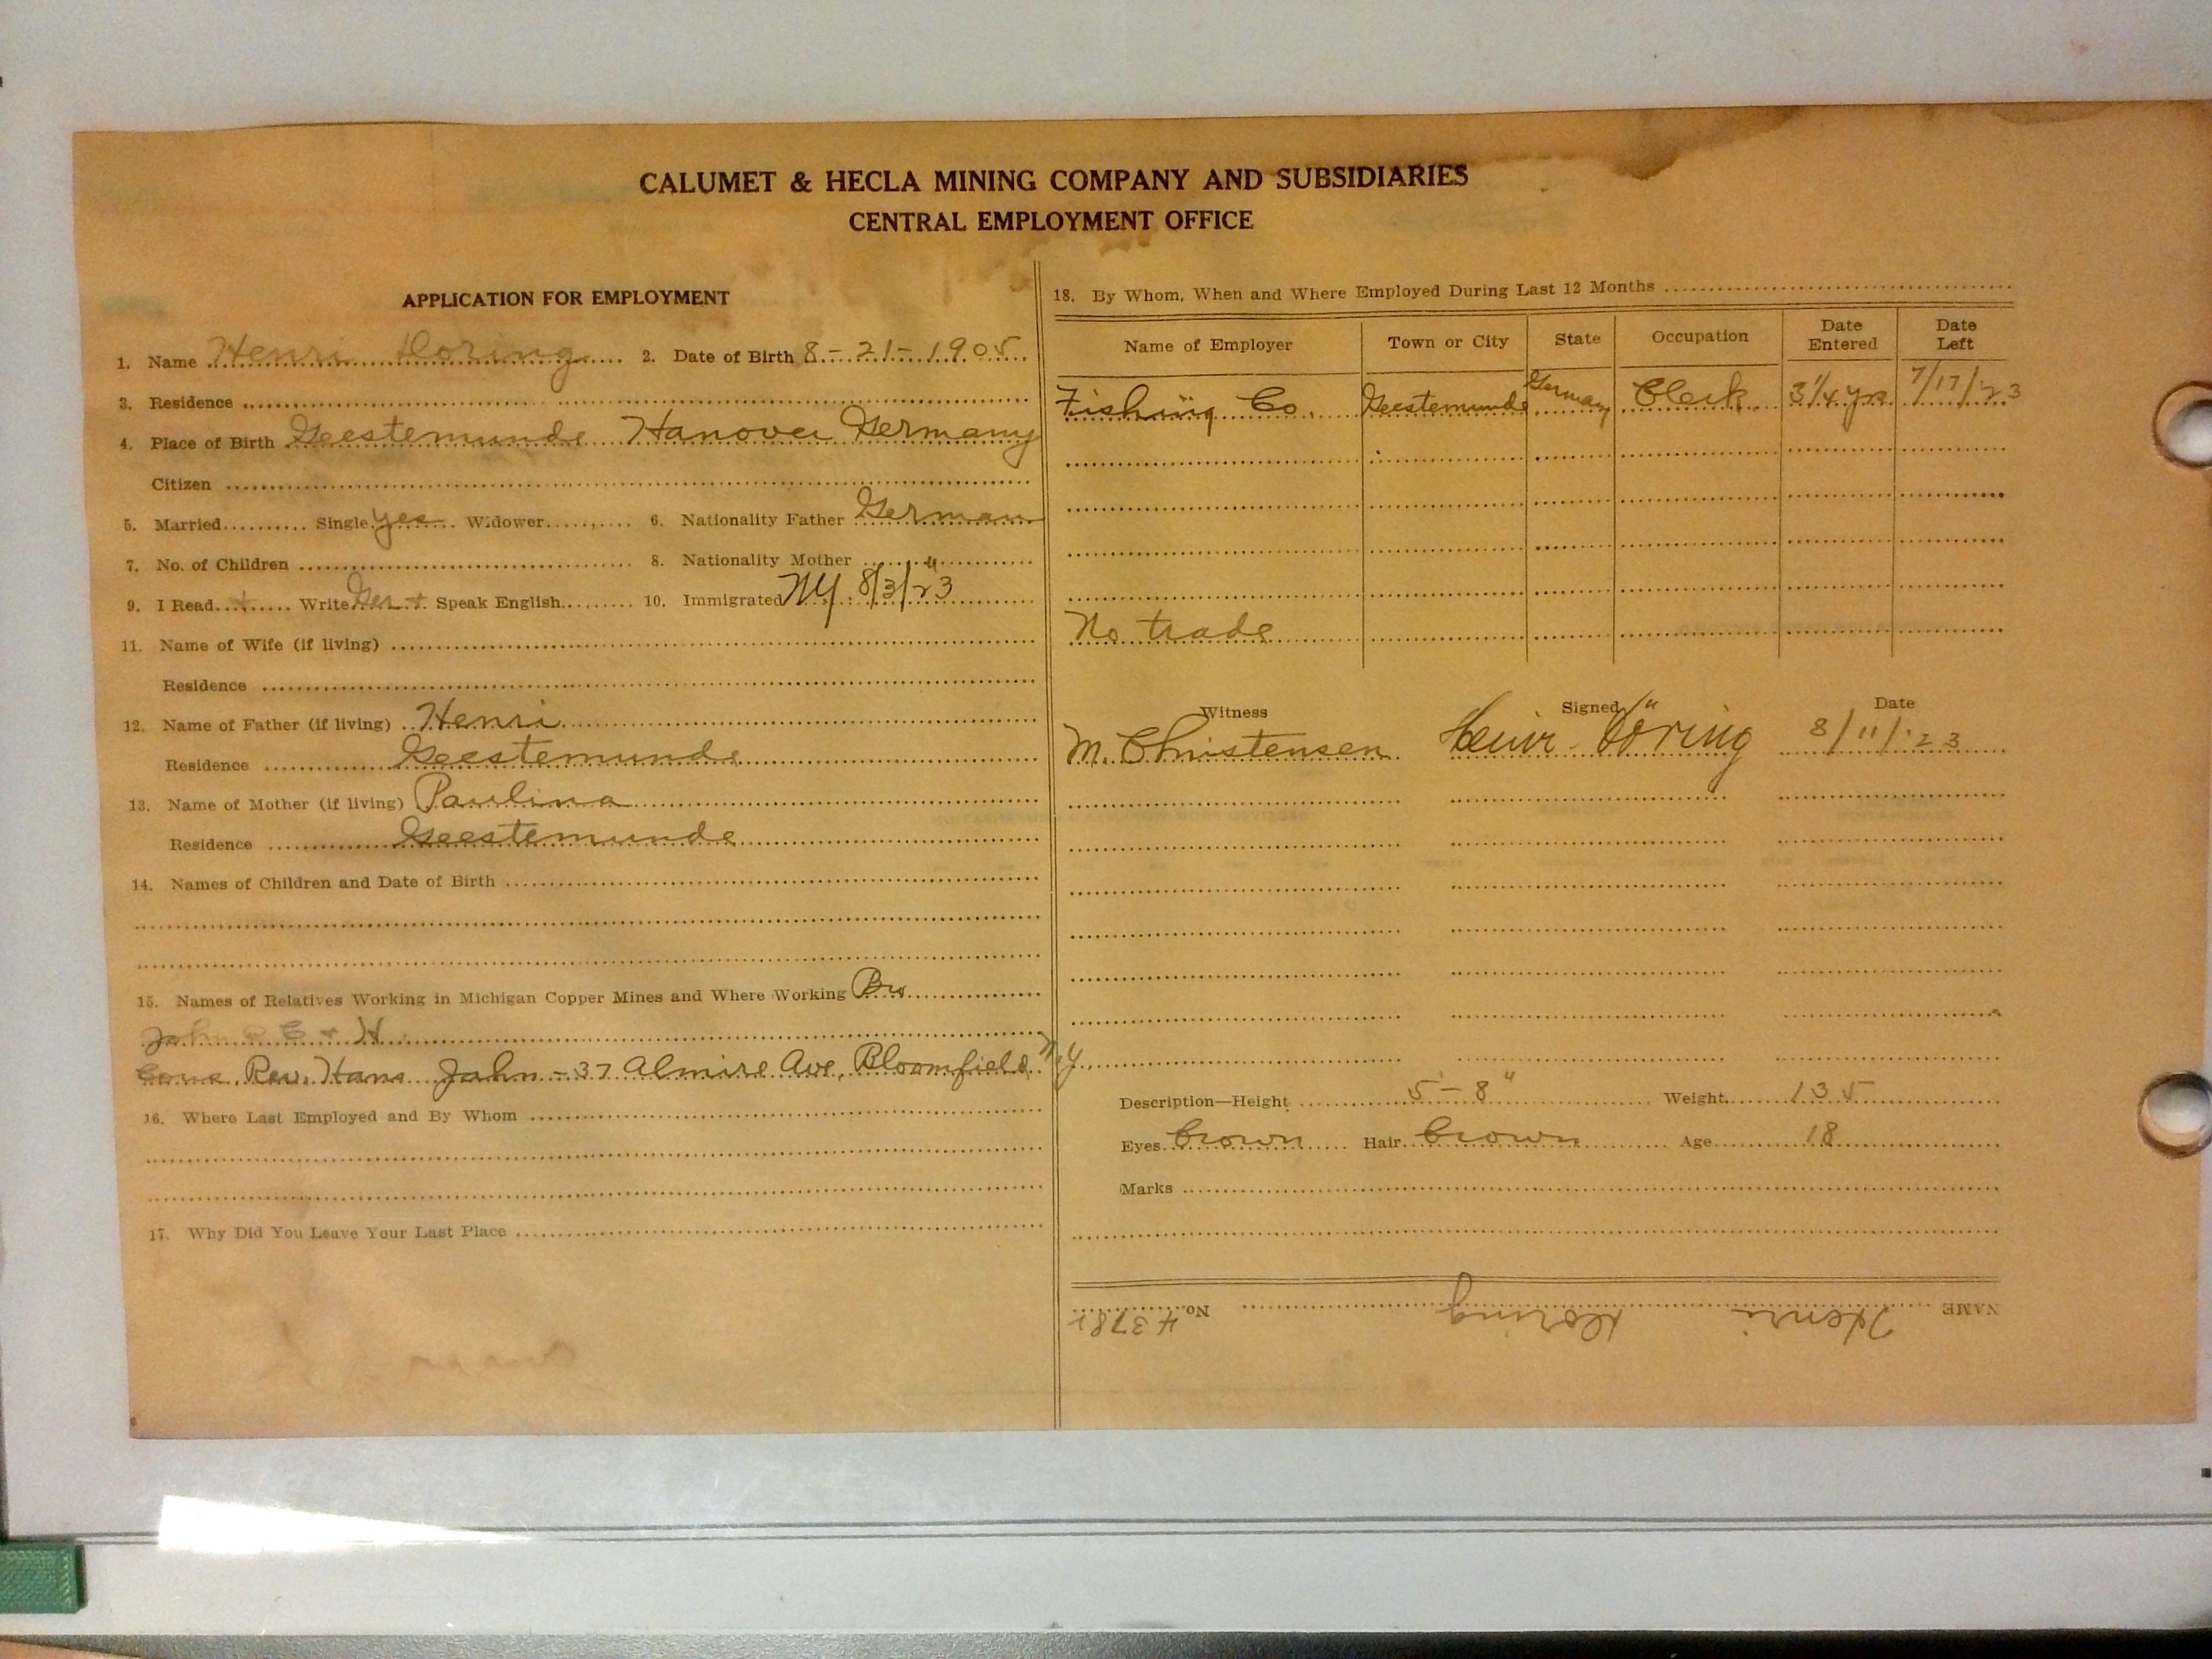 CALUMET & HECLA MINING COMPANY AND SUBSIDIARIES
CENTRAL EMPLOYMENT OFFICE
APPLICATION FOR EMPLOYMENT
1. Name Henri Döring 2. Date of Birth 8-21-1905
3. Residence
4. Place of Birth Geestemunde Hanover Germany
Citizen
5. Married Single yes Widower 6. Nationality Father German
7. No. of Children 8. Nationality Mother "
9. I Read + Write Ger + Speak English 10. Immigrated NY 8/3/23
11. Name of Wife (if living)
Residence
12. Name of Father (if living) Henri
Residence Geestemunde
13. Name of Mother (if living) Paulina
Residence Geestemunde
14. Names of Children and Date of Birth
15. Names of Relatives Working in Michigan Copper Mines and Where Working Bro
John C & H
Rev. Hans John - 37 Almire Ave, Bloomfield N.Y.
16. Where Last Employed and By Whom
17. Why Did You Leave Your Last Place
18. By Whom, When and Where Employed During Last 12 Months
Name of Employer Town or City State Occupation Date Entered Date Left
Fishing Co. Geestemunde Germany Clerk 3 1/4 yrs 7/17/23
No trade
Witness Signed Date
M. Christensen Henri Döring 8/11/'23
Description—Height 5'-8" Weight 135
Eyes brown Hair brown Age 18
Marks
NAME Henri Doring No.